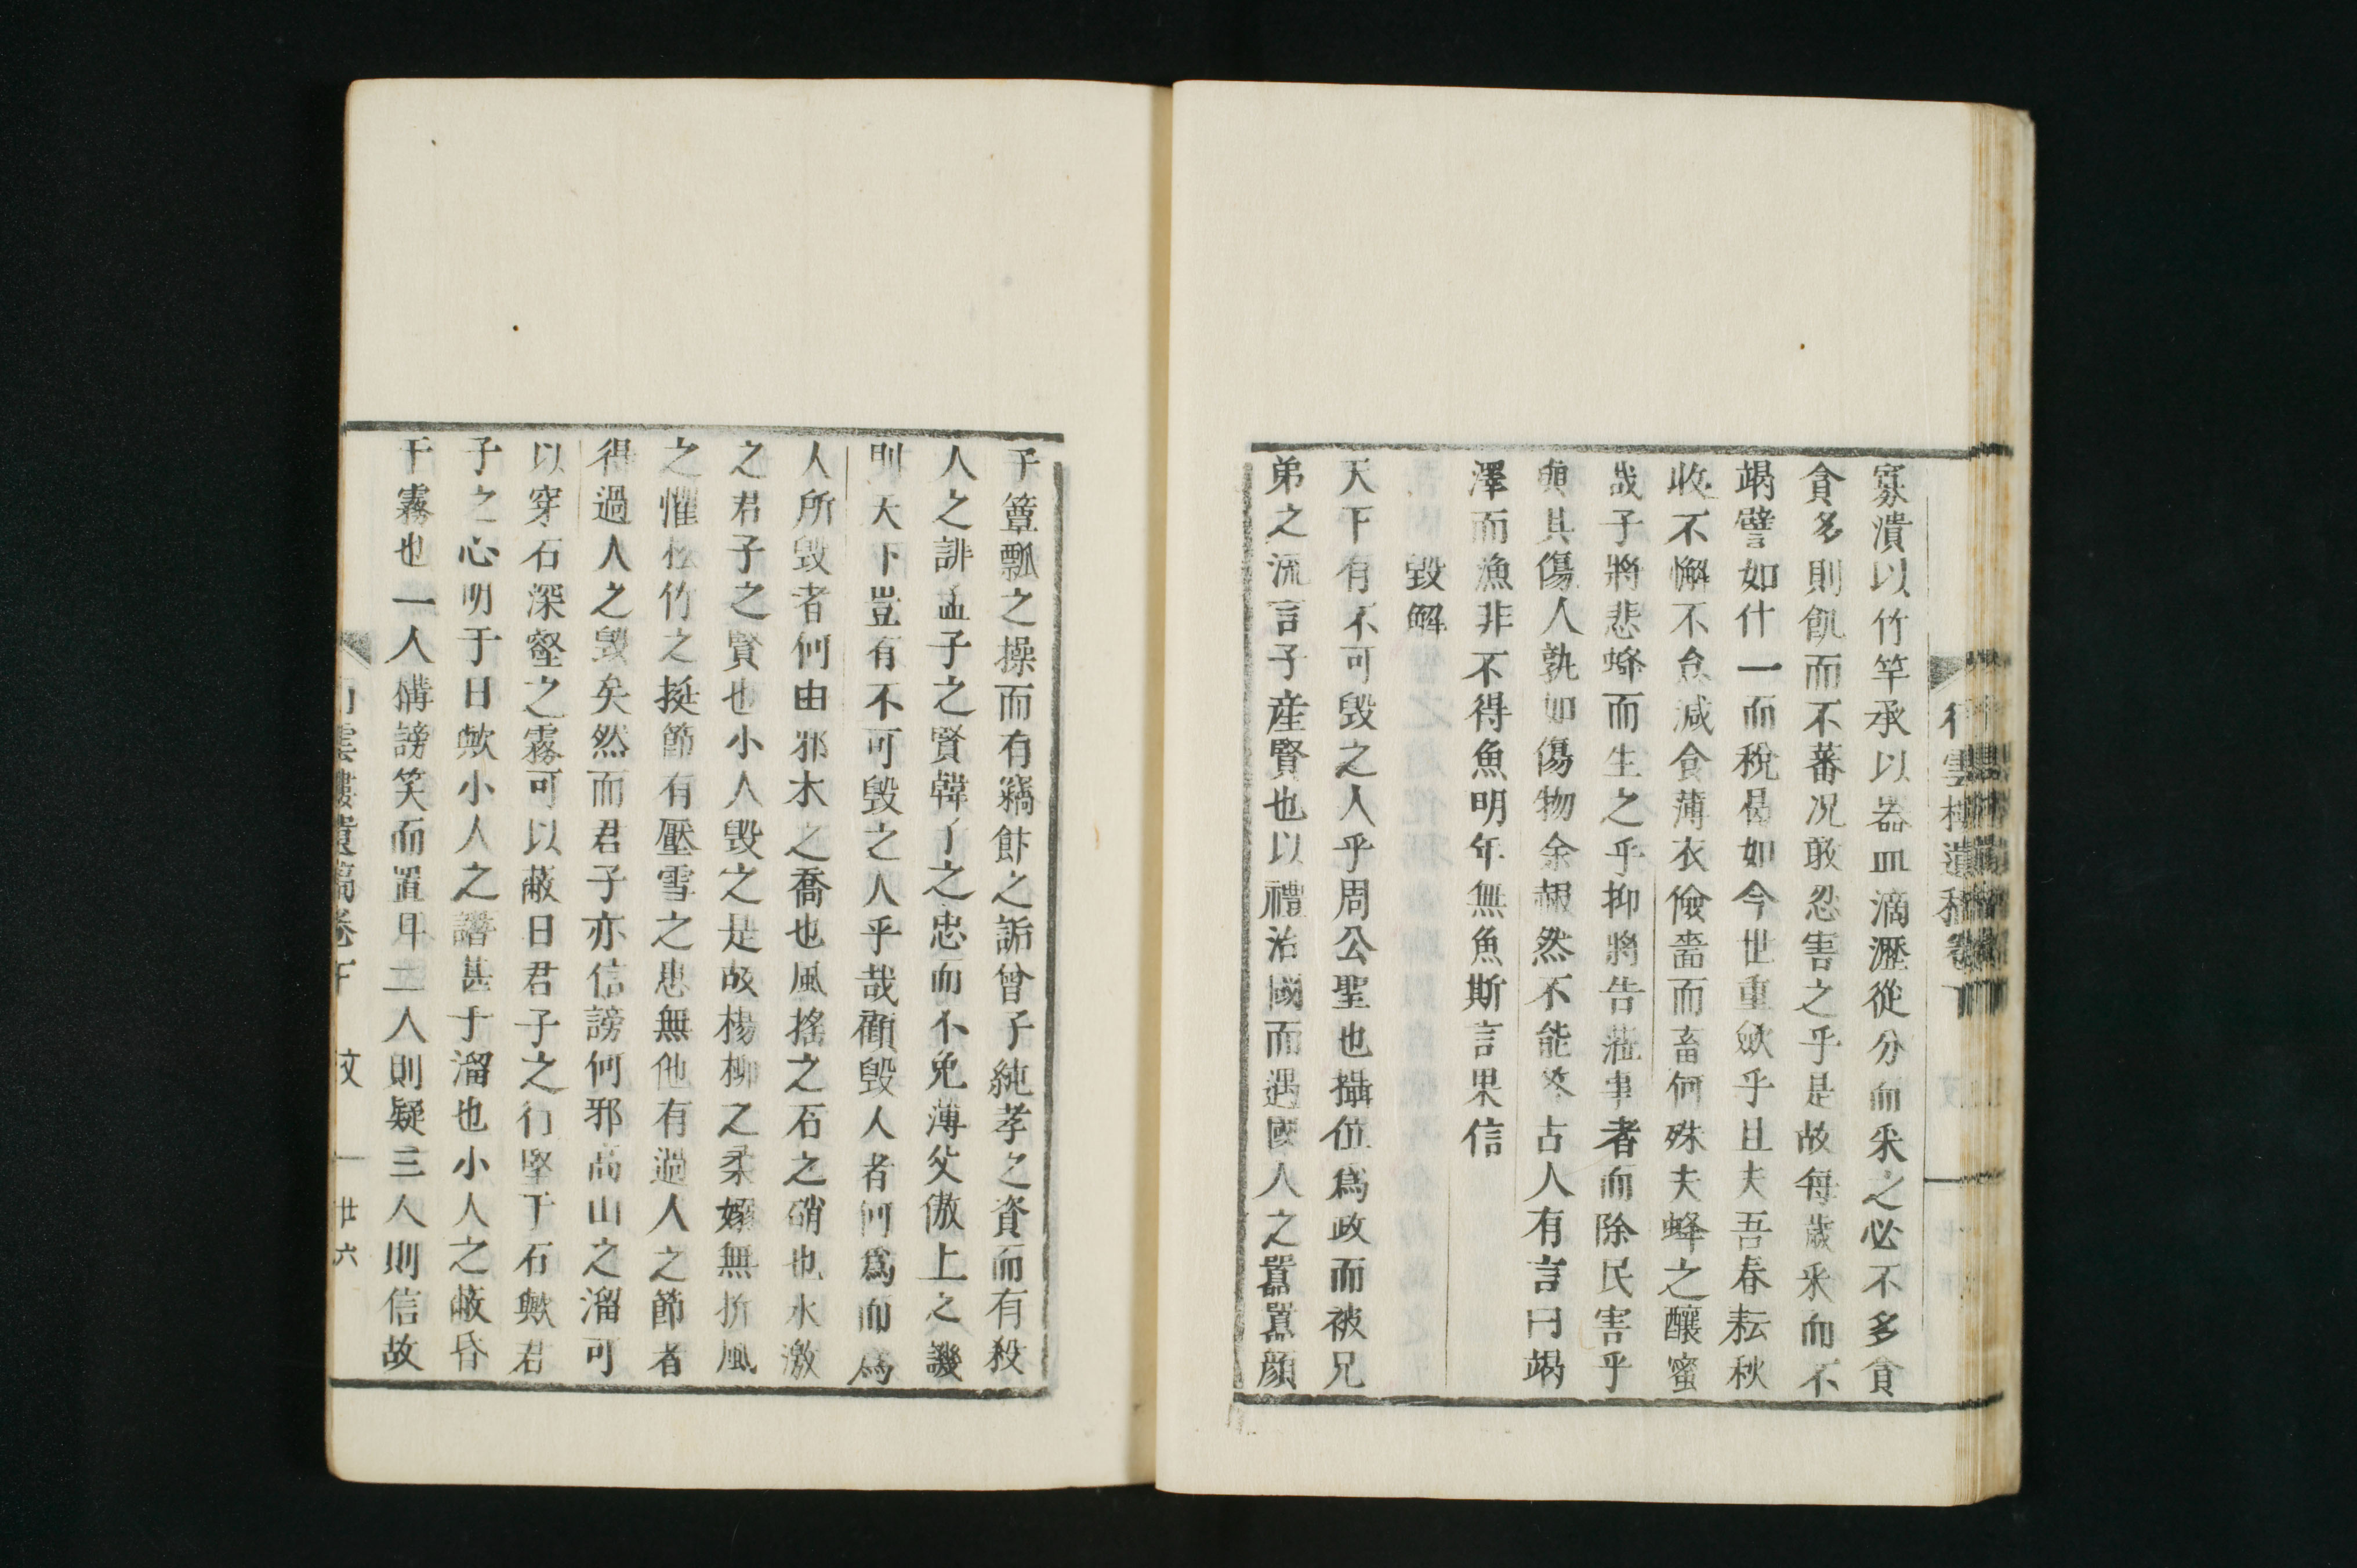 寡潰以竹竿承以器皿滴瀝從分而采之必不多貪
貪多則飢而不蕃况敢忍害之乎是故每歲采而不
竭譬如什一而稅曷如今世重歛乎且夫吾春耘秋
收不懈不怠减食薄衣儉嗇而畜何殊夫蜂之釀蜜
哉子將悲蜂而生之乎抑將告蒞事者而除民害乎
嗔其傷人孰如傷物余赧然不能答古人有言曰竭
澤而漁非不得魚明年無魚斯言果信
毀解
天下有不可毀之人乎周公聖也攝位爲政而被兄
弟之流言子產賢也以禮治國而遇國人之囂囂顔
子簞瓢之操而有竊飰之詬曾子純孝之資而有殺
人之誹孟子之賢韓子之忠而不免薄父傲上之譏
則天下豈有不可毀之人乎哉顧毀人者何爲而爲
人所毀者何由邪木之喬也風搖之石之硝也水激
之君子之賢也小人毀之是故楊柳之柔嫋無折風
之懼松竹之挺節有壓雪之患無他有過人之節者
得過人之毀矣然而君子亦信謗何邪高山之溜可
以穿石深壑之霧可以蔽日君子之行堅于石歟君
子之心明于日歟小人之譖甚于溜也小人之蔽昏
于霧也一人構謗笑而置耳二人則疑三人則信故
雲樓遺稿卷下 文 一 廿六